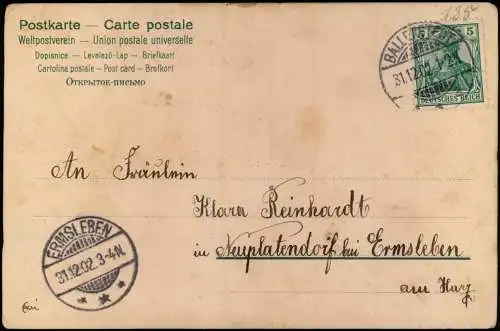 Postkarte — Carte postale
Weltpostverein – Union postale universelle
Dopisnice – Levelező-Lap – Briefkaart
Cartolina postale – Post card – Brefkort
Открытое-письмо
5
DEUTSCHES REICH
31.12.02
An Fräulein
Klara Reinhardt
in Neuplatendorf bei Ermsleben
am Harz
ERMSLEBEN
31.12.02. 3-4N.